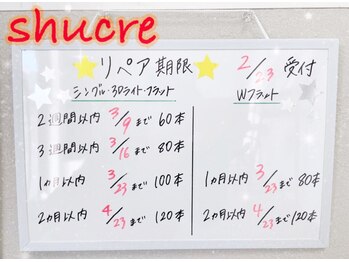 shucre
リペア期限 2/23 受付
シングル・3Dライト・フラット
2週間以内 3/9まで 60本
3週間以内 3/16まで 80本
1カ月以内 3/23まで 100本
2カ月以内 4/23まで 120本
Wフラット
1カ月以内 3/23まで 80本
2カ月以内 4/23まで 120本